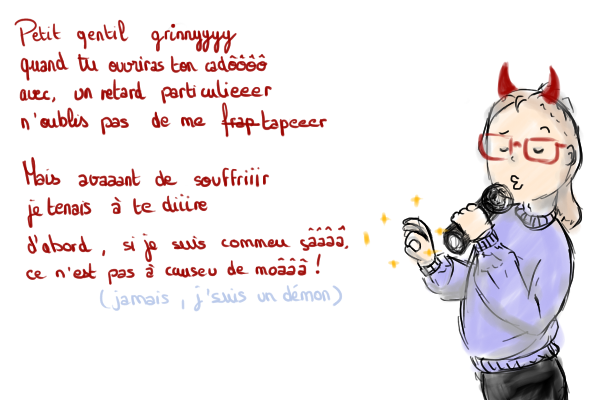 Petit gentil grinnyyyy
quand tu ouvriras ton cadôôôô
avec, un retard particulieeer
n'oublis pas de me frap tapeeer
Mais avaaant de souffriiir
je tenais à te diiire
d'abord, si je suis commeu çââââ,
ce n'est pas à causeu de moâââ !
(jamais, j'suis un démon)